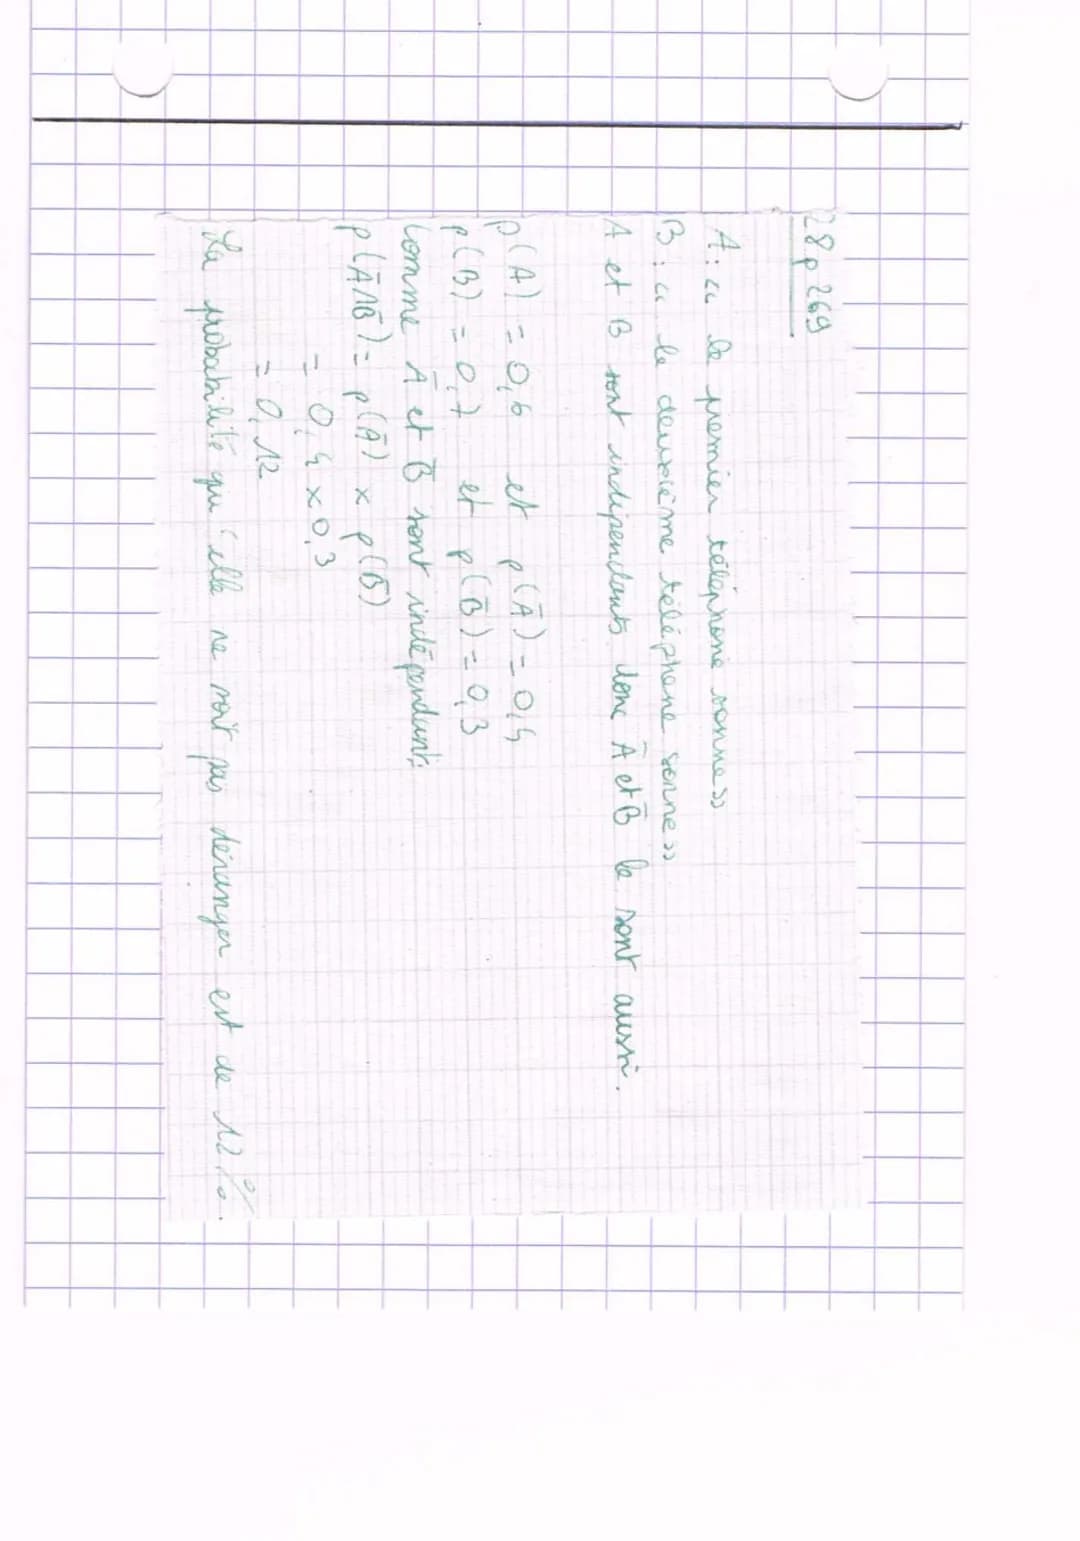 28 p 269
A : « le premier téléphone sonne »
B : « le deuxième téléphone sonne »
A et B sont indépendants donc Ā et B̄ le sont aussi.
p(A) = 0,6 et p(Ā) = 0,4
p(B) = 0,7 et p(B̄) = 0,3
Comme Ā et B̄ sont indépendants
p(Ā∩B̄) = p(Ā) × p(B̄)
= 0,4 × 0,3
= 0,12
La probabilité qu'elle ne soit pas déranger est de 12%.